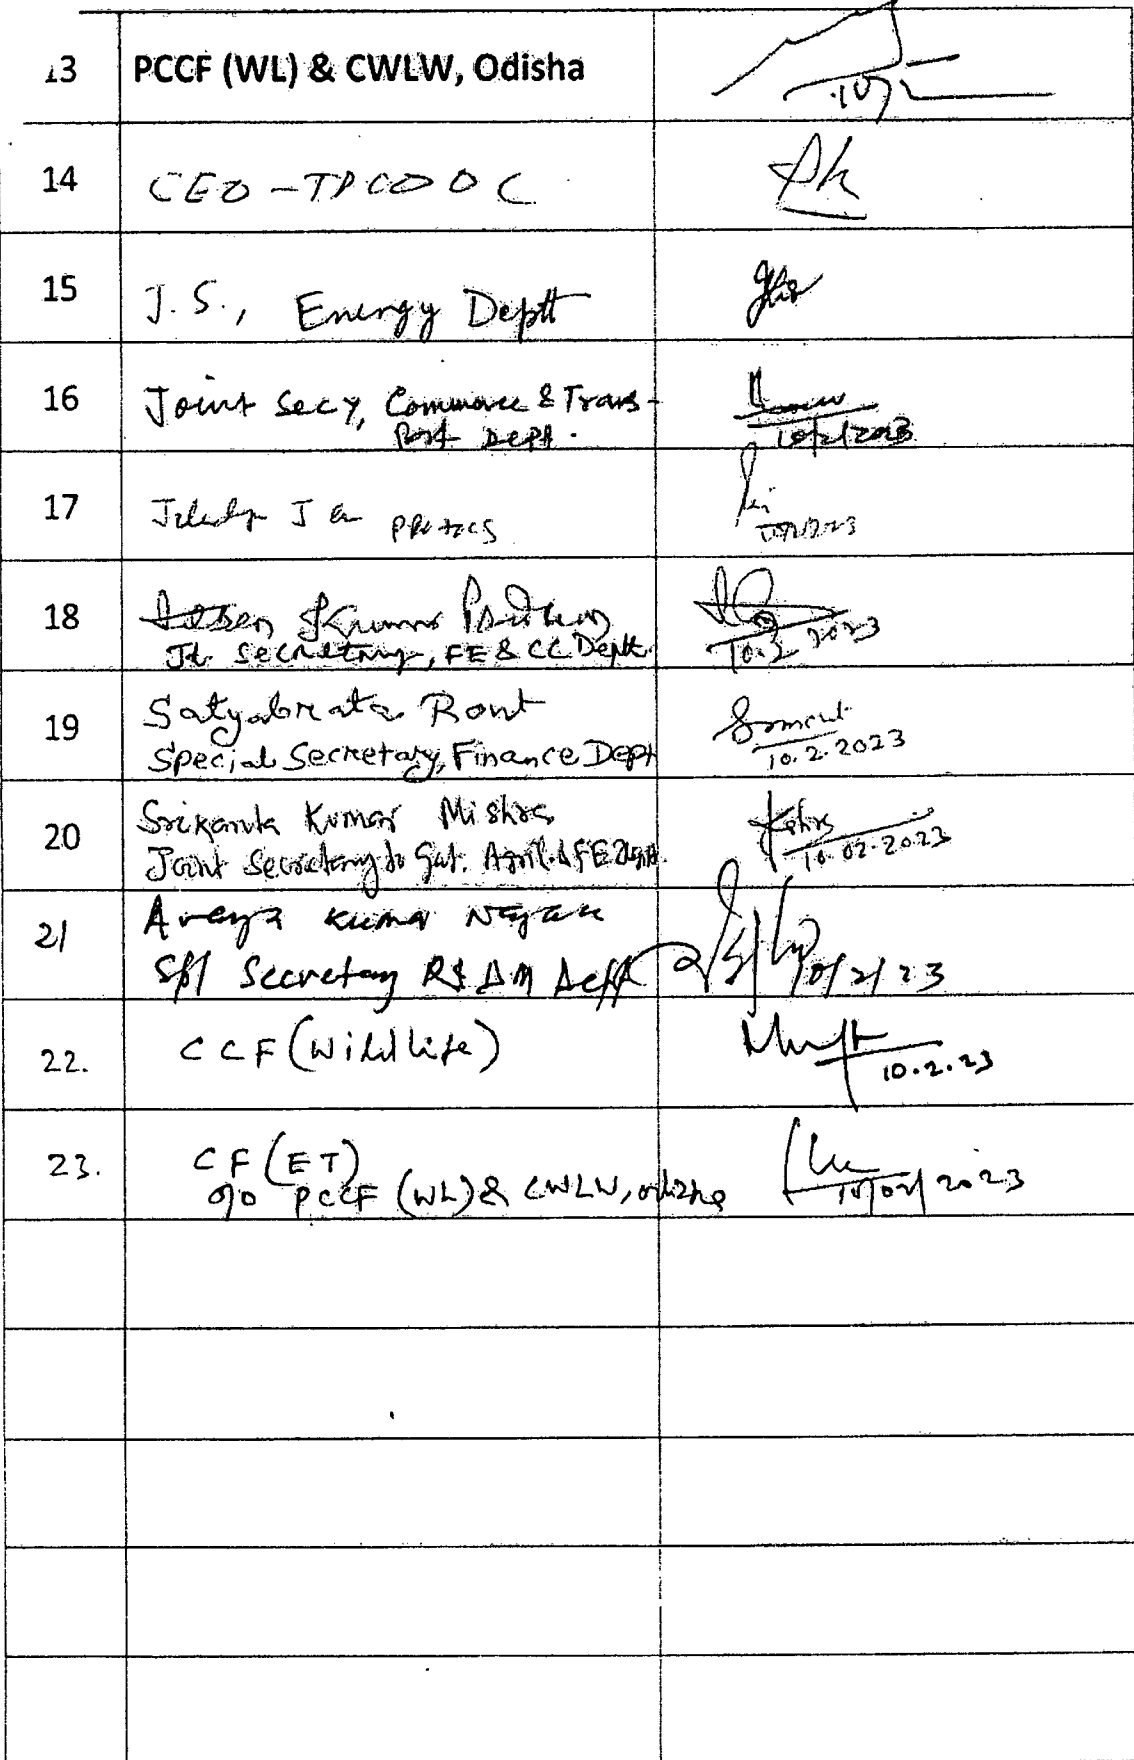 13 PCCF (WL) & CWLW, Odisha
10/2
14 CEO - TPCODC
15 J. S., Energy Deptt
16 Joint Secy, Commerce & Trans-
port Dept.
10/2/2023
17
18 Kumar
Jt. Secretary, FE & CC Deptt.
10.2.2023
19 Satyabrata Rout
Special Secretary, Finance Dept
10.2.2023
20 Srikanta Kumar Mishra
Joint Secretary to Govt. & FE Deptt.
10.02.2023
21 Kumar Nayak
Spl Secretary R & DM Deptt
10/2/23
22. CCF (Wildlife)
10.2.23
23. CF (ET)
O/o PCCF (WL) & CWLW, Odisha
10/02/2023